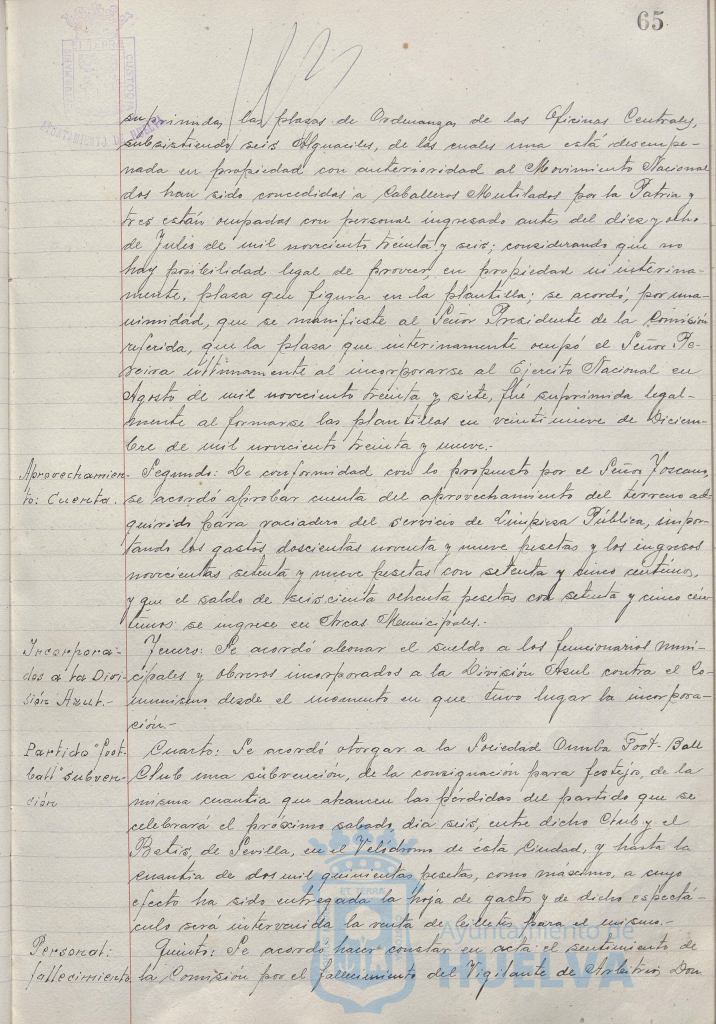 65
suprimidas las plazas de Ordenanzas de las Oficinas Centrales,
subsistiendo seis Alguaciles, de los cuales una está desempe-
nada en propiedad con anterioridad al Movimiento Nacional
dos han sido concedidas a Caballeros Mutilados por la Patria y
tres están ocupadas con personal ingresado antes del diez y ocho
de Julio de mil novecientos treinta y seis; considerando que no
hay posibilidad legal de proveer, en propiedad ni interina-
mente, plaza que figura en la plantilla; se acordó, por una-
nimidad, que se manifieste al Señor Presidente de la Comisión
referida, que la plaza que interinamente ocupó el Señor Pe-
reira ultimamente al incorporarse al Ejercito Nacional en
Agosto de mil novecientos treinta y siete, fué suprimida legal-
mente al formarse las plantillas en veintinueve de Diciem-
bre de mil novecientos treinta y nueve.-
Aprovechamien-
to: Cuenta.
Segundo: De conformidad con lo propuesto por el Señor Toscano,
se acordó aprobar cuenta del aprovechamiento del terreno ad-
quirido para vaciadero del servicio de Limpieza Pública, impor-
tando los gastos, doscientas noventa y nueve pesetas y los ingresos
novecientas setenta y nueve pesetas con setenta y cinco centimos,
y que el saldo de seiscienta ochenta pesetas con setenta y cinco cén-
timos se ingrese en Arcas Municipales.-
Incorpora-
dos a la Divi-
sión Azul.-
Tercero: Se acordó abonar el sueldo a los funcionarios muni-
cipales y obreros incorporados a la División Azul contra el Co-
munismo desde el momento en que tuvo lugar la incorpora-
ción.-
Partido "foot-
ball" subven-
ción
Cuarto: Se acordó otorgar a la Sociedad Onuba Foot-Ball
Club una subvención, de la consignación para festejos, de la
misma cuantia que alcancen las pérdidas del partido que se
celebrará el próximo sabado, dia seis, entre dicho Club y el
Betis, de Sevilla, en el Velódromo de ésta Ciudad, y hasta la
cuantia de dos mil quinientas pesetas, como máximo, a cuyo
efecto ha sido entregada la hoja de gastos y de dicho espectá-
culo será intervenida la venta de billetes para el mismo.-
Personal:
fallecimiento
Quinto: Se acordó hacer constar en acta el sentimiento de
la Comisión por el fallecimiento del Vigilante de Arbitrios Don
AYUNTAMIENTO DE HUELVA
ET TERRA
Ayuntamiento de
HUELVA